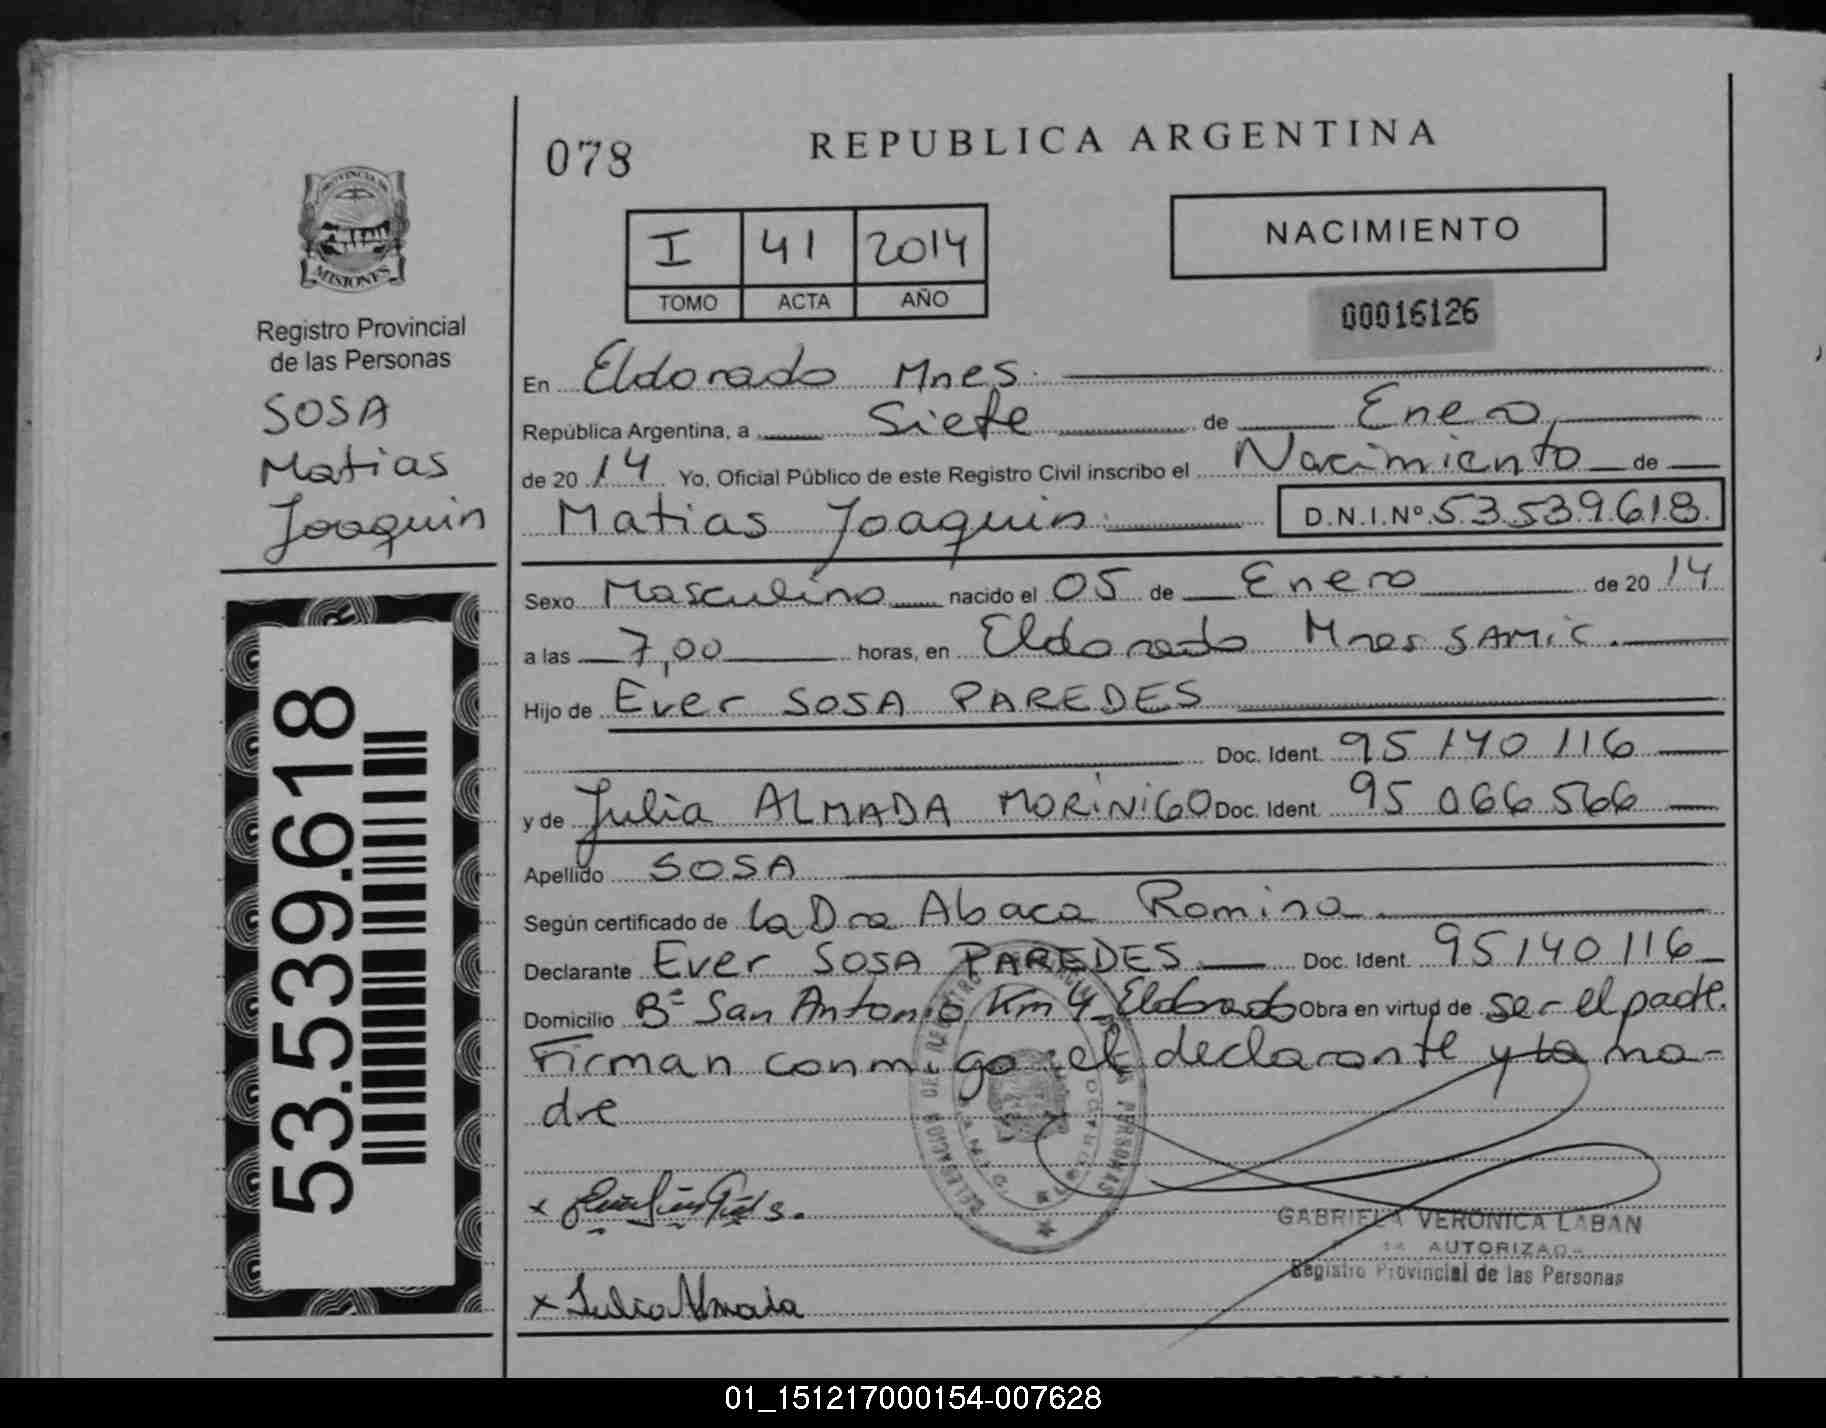 078
REPUBLICA ARGENTINA
PROVINCIA DE
MISIONES
Registro Provincial
de las Personas
SOSA
Matias
Joaquin
53.539.618
I 41 2014
TOMO ACTA AÑO
NACIMIENTO
00016126
En Eldorado Mnes.
República Argentina, a Siete de Enero
de 20 14 Yo, Oficial Público de este Registro Civil inscribo el Nacimiento de
Matias Joaquin D.N.I.Nº 53.539.618
Sexo Masculino nacido el 05 de Enero de 20 14
a las 7,00 horas, en Eldorado Mnes SAMIC.
Hijo de Ever SOSA PAREDES
Doc. Ident. 95 140 116
y de Julia ALMADA MORINIGO Doc. Ident. 95 066 566
Apellido SOSA
Según certificado de la Dra Abaca Romina
Declarante Ever SOSA PAREDES Doc. Ident. 95140116
Domicilio Bº San Antonio Km 4 Eldorado Obra en virtud de ser el padre.
Firman conmigo el declarante y la ma-
dre
GABRIELA VERONICA LABAN
AUTORIZAD
Registro Provincial de las Personas
x Julia Almada
01_151217000154-007628